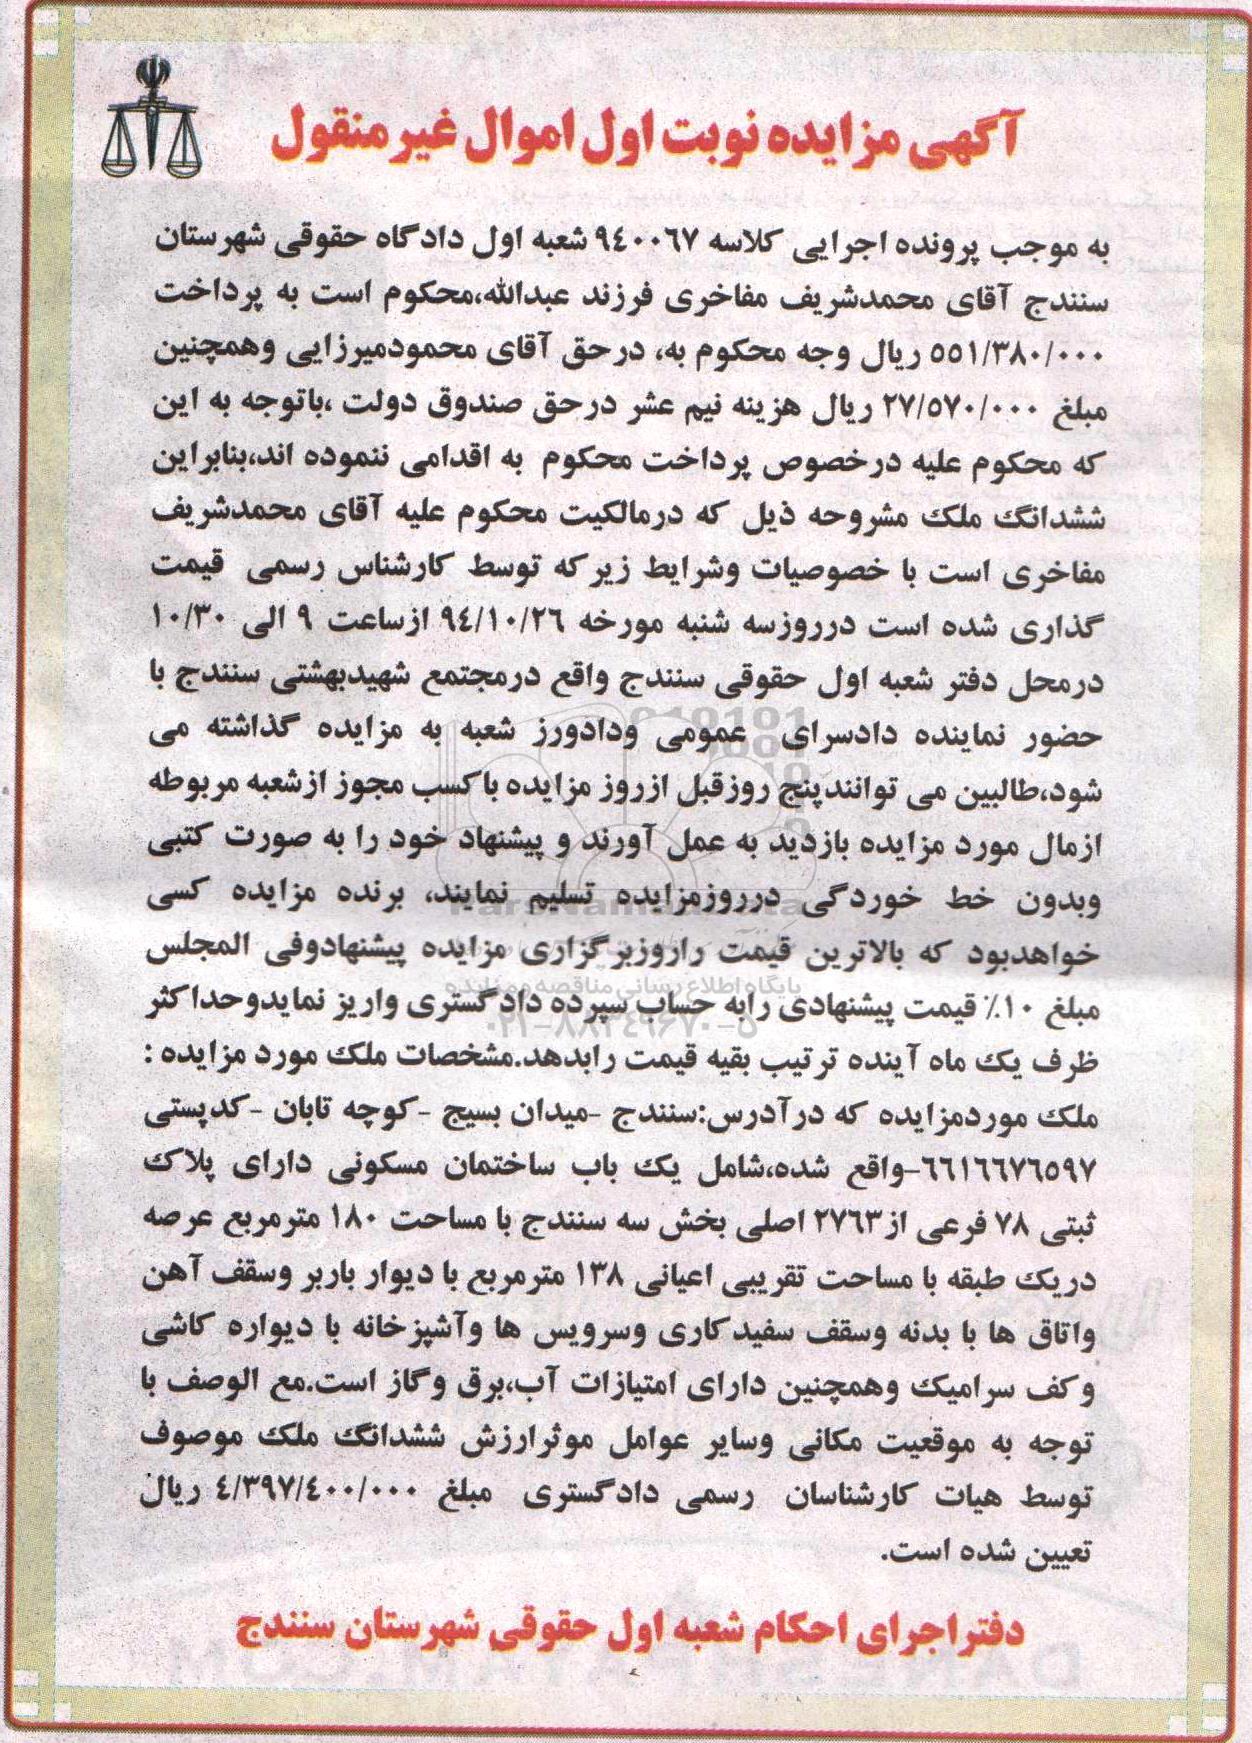 آگهی مزایده نوبت اول اموال غیر منقول
به موجب پرونده اجرایی کلاسه ۹٤۰۰٦۷ شعبه اول دادگاه حقوقی شهرستان
سنندج آقای محمدشریف مفاخری فرزند عبدالله،محکوم است به پرداخت
۵۵۱/۳۸۰/۰۰۰ ریال وجه محکوم به، درحق آقای محمودمیرزایی وهمچنین
مبلغ ۲۷/۵۷۰/۰۰۰ ریال هزینه نیم عشر درحق صندوق دولت ،باتوجه به این
که محکوم علیه درخصوص پرداخت محکوم به اقدامی ننموده اند،بنابراین
ششدانگ ملک مشروحه ذیل که درمالکیت محکوم علیه آقای محمدشریف
مفاخری است با خصوصیات وشرایط زیرکه توسط کارشناس رسمی قیمت
گذاری شده است درروزسه شنبه مورخه ۹٤/۱۰/۲٦ ازساعت ۹ الی ۱۰/۳۰
درمحل دفتر شعبه اول حقوقی سنندج واقع درمجتمع شهیدبهشتی سنندج با
حضور نماینده دادسرای عمومی ودادورز شعبه به مزایده گذاشته می
شود،طالبین می توانندپنج روزقبل ازروز مزایده باکسب مجوز ازشعبه مربوطه
ازمال مورد مزایده بازدید به عمل آورند و پیشنهاد خود را به صورت کتبی
وبدون خط خوردگی درروزمزایده تسلیم نمایند، برنده مزایده کسی
خواهدبود که بالاترین قیمت راروزبرگزاری مزایده پیشنهادوفی المجلس
پایگاه اطلاع رسانی مناقصه و مزایده
مبلغ ۱۰٪ قیمت پیشنهادی رابه حساب سپرده دادگستری واریز نمایدوحداکثر
۰۲۱-۸۸۳٤۹٦۷۰-۵
ظرف یک ماه آینده ترتیب بقیه قیمت رابدهد.مشخصات ملک مورد مزایده :
ملک موردمزایده که درآدرس:سنندج -میدان بسیج -کوچه تابان -کدپستی
٦٦۱٦٦۷٦۵۹۷-واقع شده،شامل یک باب ساختمان مسکونی دارای پلاک
ثبتی ۷۸ فرعی از۲۷٦۳ اصلی بخش سه سنندج با مساحت ۱۸۰ مترمربع عرصه
دریک طبقه با مساحت تقریبی اعیانی ۱۳۸ مترمربع با دیوار باربر وسقف آهن
واتاق ها با بدنه وسقف سفیدکاری وسرویس ها وآشپزخانه با دیواره کاشی
وکف سرامیک وهمچنین دارای امتیازات آب،برق وگاز است.مع الوصف با
توجه به موقعیت مکانی وسایر عوامل موثرارزش ششدانگ ملک موصوف
توسط هیات کارشناسان رسمی دادگستری مبلغ ٤/۳۹۷/٤۰۰/۰۰۰ ریال
تعیین شده است.
دفتراجرای احکام شعبه اول حقوقی شهرستان سنندج